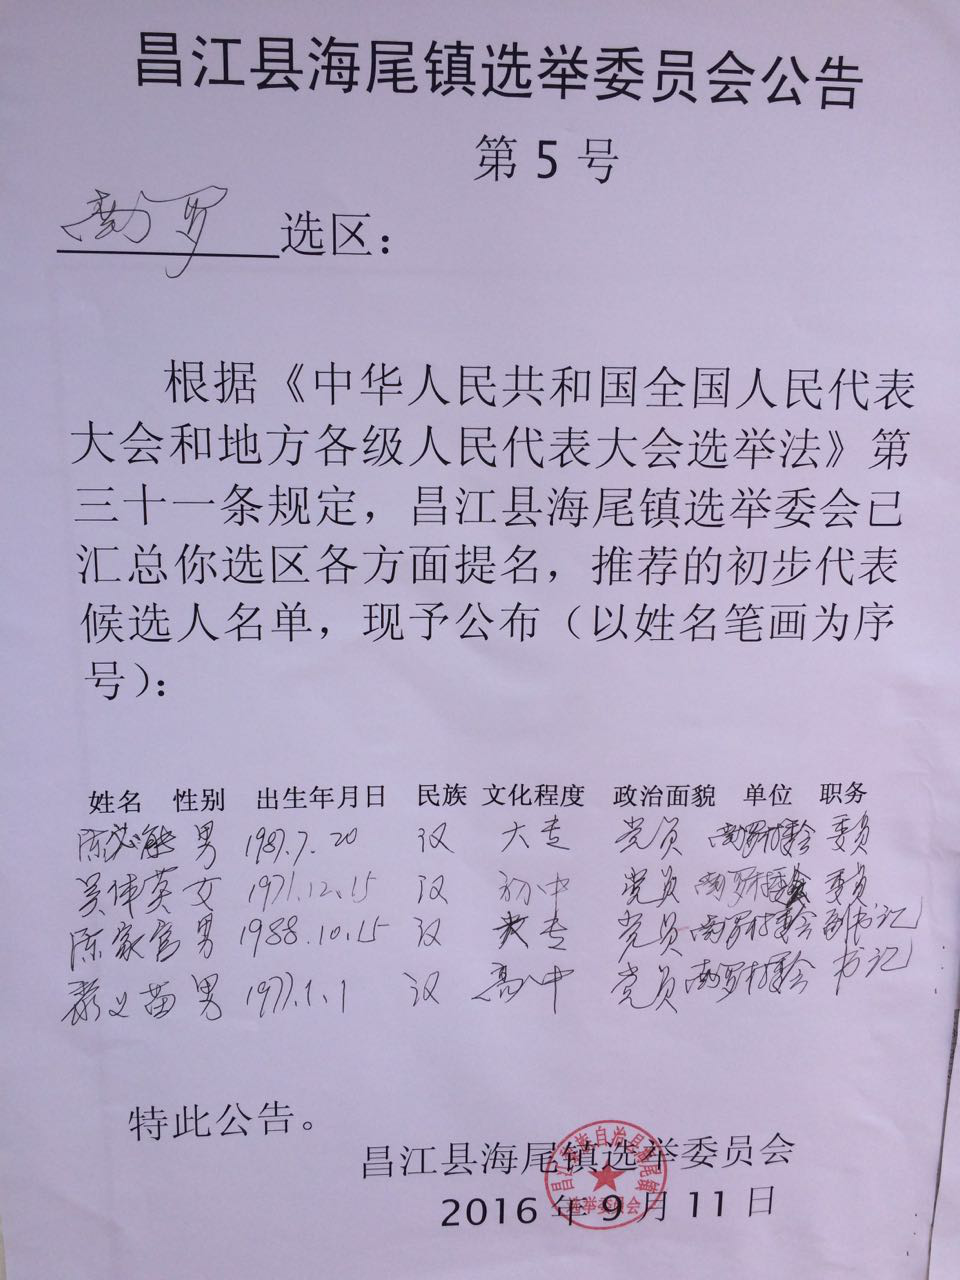 昌江县海尾镇选举委员会公告
第 5 号
南罗 选区：
根据《中华人民共和国全国人民代表
大会和地方各级人民代表大会选举法》第
三十一条规定，昌江县海尾镇选举委会已
汇总你选区各方面提名，推荐的初步代表
候选人名单，现予公布（以姓名笔画为序
号）：
姓名 性别 出生年月日 民族 文化程度 政治面貌 单位 职务
陈 能 男 1987.7.20 汉 大专 党员 南罗村委会 委员
吴伟英 女 1971.12.15 汉 初中 党员 南罗村委会 委员
陈家富 男 1988.10.15 汉 大专 党员 南罗村委会 副书记
义苗 男 1977.1.1 汉 高中 党员 南罗村委会 书记
特此公告。
昌江县海尾镇选举委员会
2016 年 9 月 11 日
昌江黎族自治县海尾镇
选举委员会